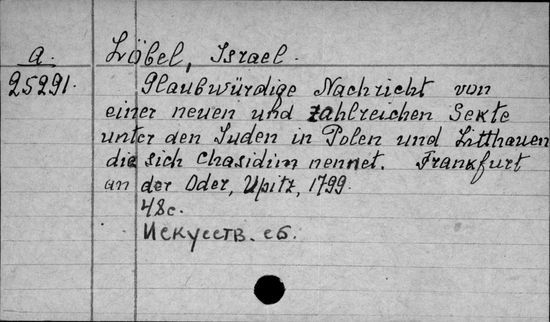 a. Löbel, Israel.
25291. Glaubwürdige Nachricht von
einer neuen und zahlreichen Sekte
unter den Juden in Polen und Litthauen
die sich Chasidim nennet. Frankfurt
an der Oder, Upitz, 1799.
48c.
Искусств. еб.